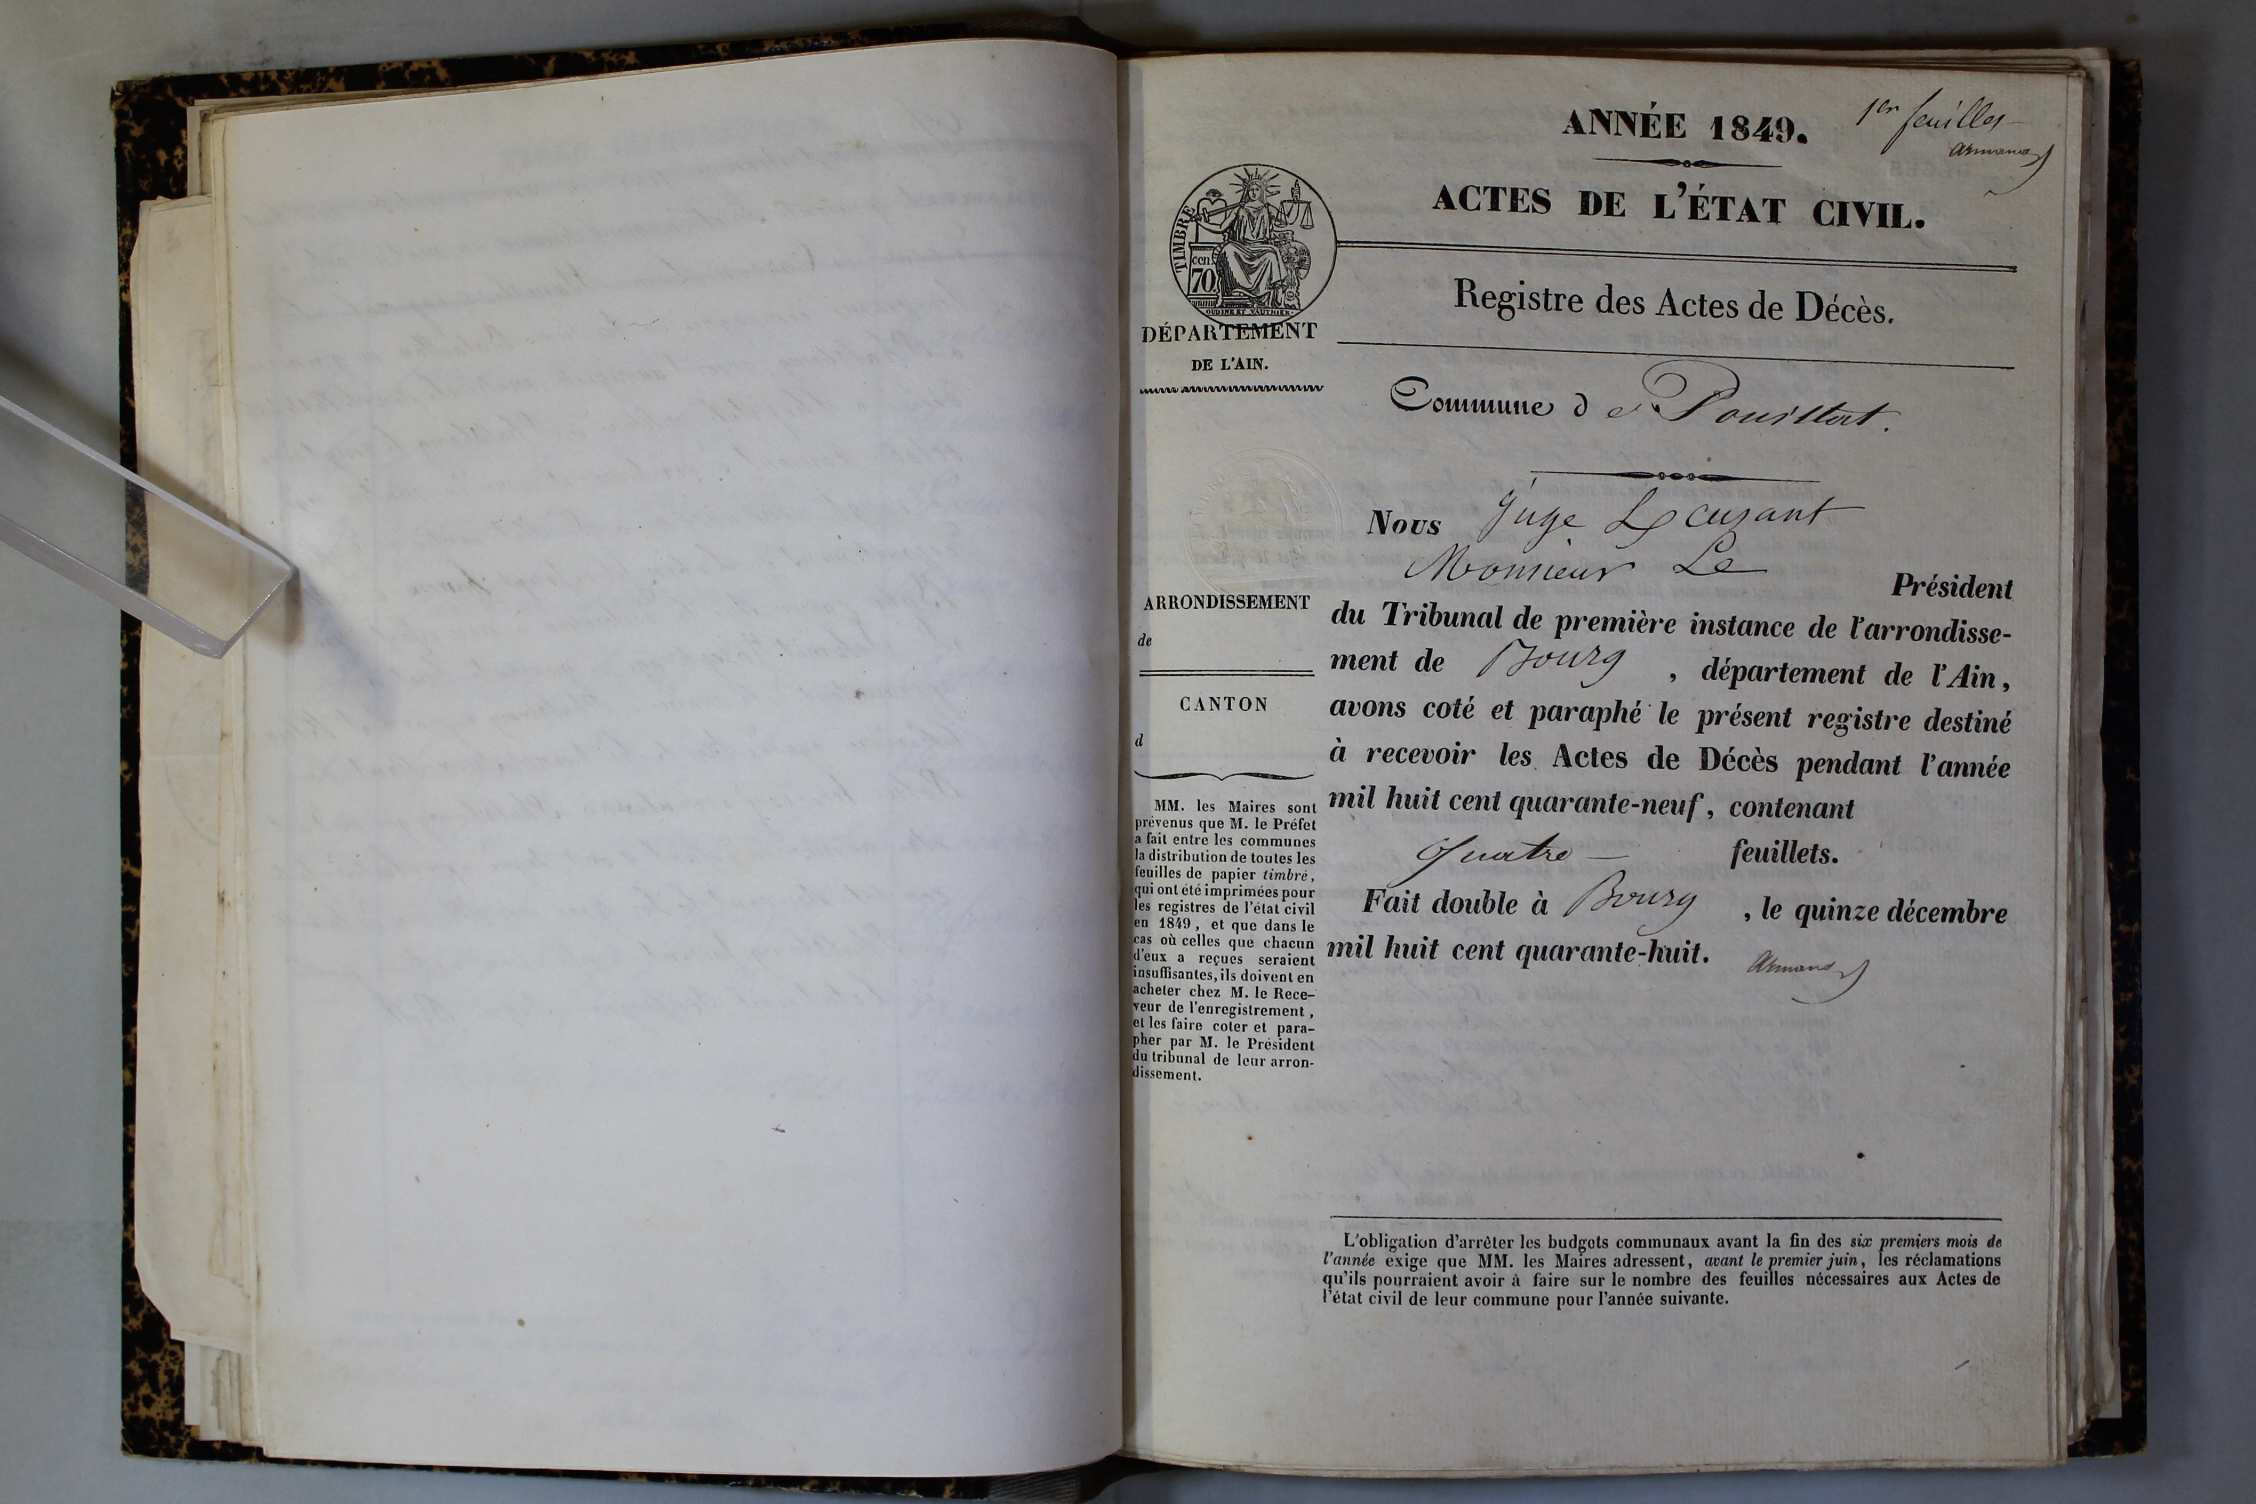 ANNÉE 1849.
1er feuillet
Armand
ACTES DE L'ÉTAT CIVIL.
TIMBRE
cen.
70
OUDINE ET VAUTHIER.
DÉPARTEMENT
DE L'AIN.
Registre des Actes de Décès.
Commune de Pouillat.
Nous Juge
Monsieur Le
Président
du Tribunal de première instance de l'arrondisse-
ment de Bourg, département de l'Ain,
avons coté et paraphé le présent registre destiné
à recevoir les Actes de Décès pendant l'année
mil huit cent quarante-neuf, contenant
quatre feuillets.
Fait double à Bourg, le quinze décembre
mil huit cent quarante-huit.
Armand
ARRONDISSEMENT
de
CANTON
d
MM. les Maires sont
prévenus que M. le Préfet
a fait entre les communes
la distribution de toutes les
feuilles de papier timbré,
qui ont été imprimées pour
les registres de l'état civil
en 1849, et que dans le
cas où celles que chacun
d'eux a reçues seraient
insuffisantes, ils doivent en
acheter chez M. le Rece-
veur de l'enregistrement,
et les faire coter et para-
pher par M. le Président
du tribunal de leur arron-
dissement.
L'obligation d'arrêter les budgets communaux avant la fin des six premiers mois de
l'année exige que MM. les Maires adressent, avant le premier juin, les réclamations
qu'ils pourraient avoir à faire sur le nombre des feuilles nécessaires aux Actes de
l'état civil de leur commune pour l'année suivante.